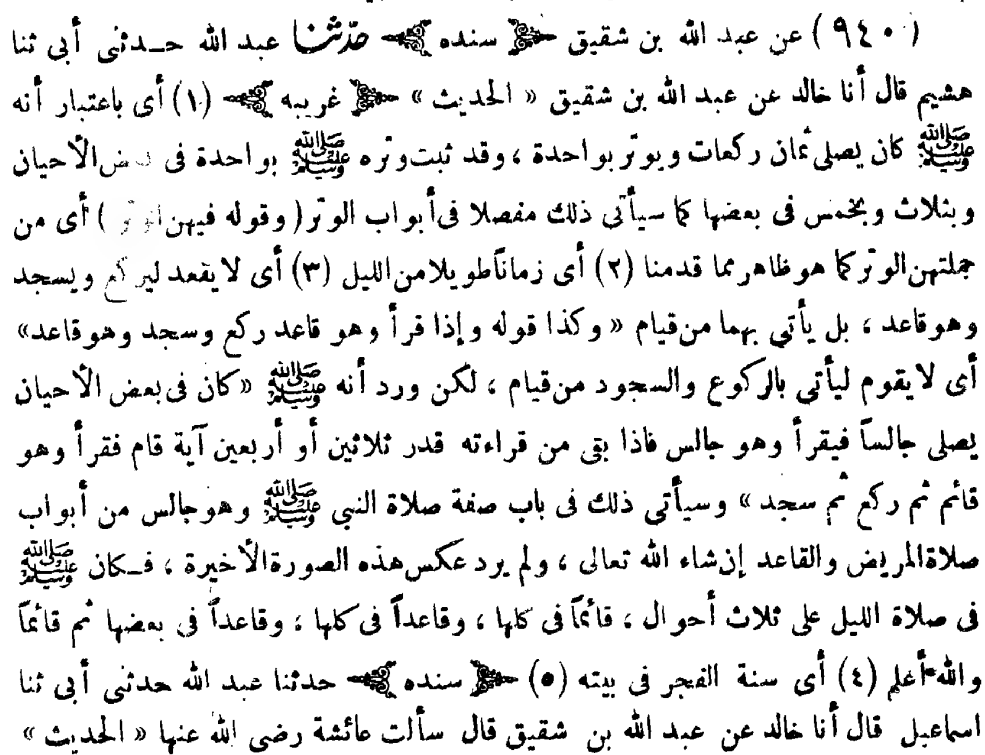 (٩٤٠) عن عبد الله بن شقيق ﴿ سنده ﴾ حدّثنا عبد الله حدثنى أبى ثنا
هشيم قال أنا خالد عن عبد الله بن شقيق « الحديث » ﴿ غريبه ﴾ (١) أى باعتبار أنه
ﷺ كان يصلى ثمان ركعات ويوتر بواحدة ، وقد ثبت وتره ﷺ بواحدة فى بعض الأحيان
وبثلاث وبخمس فى بعضها كما سيأتى ذلك مفصلا فى أبواب الوتر ( وقوله فيهن الوتر ) أى من
جملتهن الوتر كما هو ظاهر مما قدمنا (٢) أى زماناً طويلا من الليل (٣) أى لا يقعد ليركع ويسجد
وهو قاعد ، بل يأتي بهما من قيام « وكذا قوله وإذا قرأ وهو قاعد ركع وسجد وهو قاعد»
أى لا يقوم ليأتي بالركوع والسجود من قيام ، لكن ورد أنه ﷺ «كان فى بعض الأحيان
يصلى جالساً فيقرأ وهو جالس فاذا بقى من قراءته قدر ثلاثين أو أربعين آية قام فقرأ وهو
قائم ثم ركع ثم سجد » وسيأتي ذلك فى باب صفة صلاة النبي ﷺ وهو جالس من أبواب
صلاة المريض والقاعد إن شاء الله تعالى ، ولم يرد عكس هذه الصورة الأخيرة ، فكان ﷺ
فى صلاة الليل على ثلاث أحوال ، قائماً فى كلها ، وقاعداً فى كلها ، وقاعداً فى بعضها ثم قائماً
والله أعلم (٤) أى سنة الفجر فى بيته (٥) ﴿ سنده ﴾ حدثنا عبد الله حدثنى أبى ثنا
اسماعيل قال أنا خالد عن عبد الله بن شقيق قال سألت عائشة رضى الله عنها « الحديث »